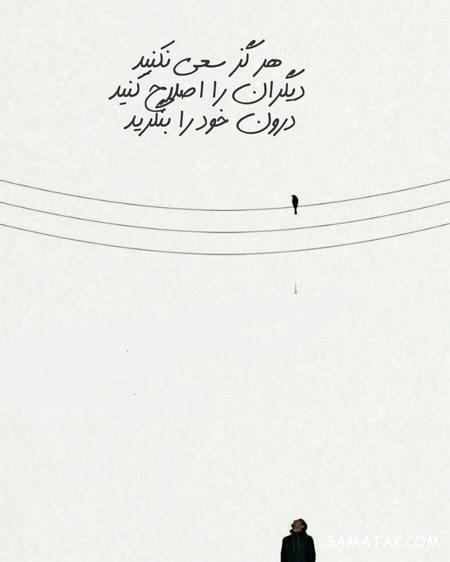 هرگز سعی نکنید
دیگران را اصلاح کنید
درون خود را بنگرید
SAMATAK.COM